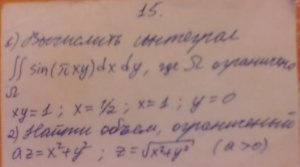 15.
1) Вычислить интеграл
∬ sin(πxy)dxdy, где Ω ограничена
Ω
xy=1; x=1/2; x=1; y=0
2) Найти объем, ограниченный
az=x²+y²; z=√x²+y² (a>0)